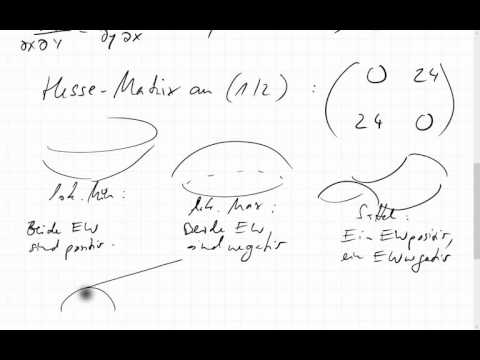 ∂x∂y = ∂y∂x
Hesse-Matrix an (1/2) : ( 0 24
24 0 )
lok. Min:
Beide EW
sind positiv.
lok. Max:
Beide EW
sind negativ
Sattel:
Ein EW positiv,
ein EW negativ